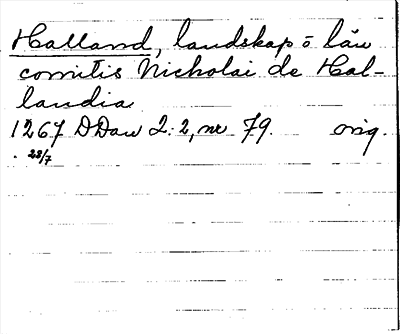 Halland, landskap o län
comitis Nicholai de Hal-
landia
1267 DDan 2:2, nr 79. orig.
23/7